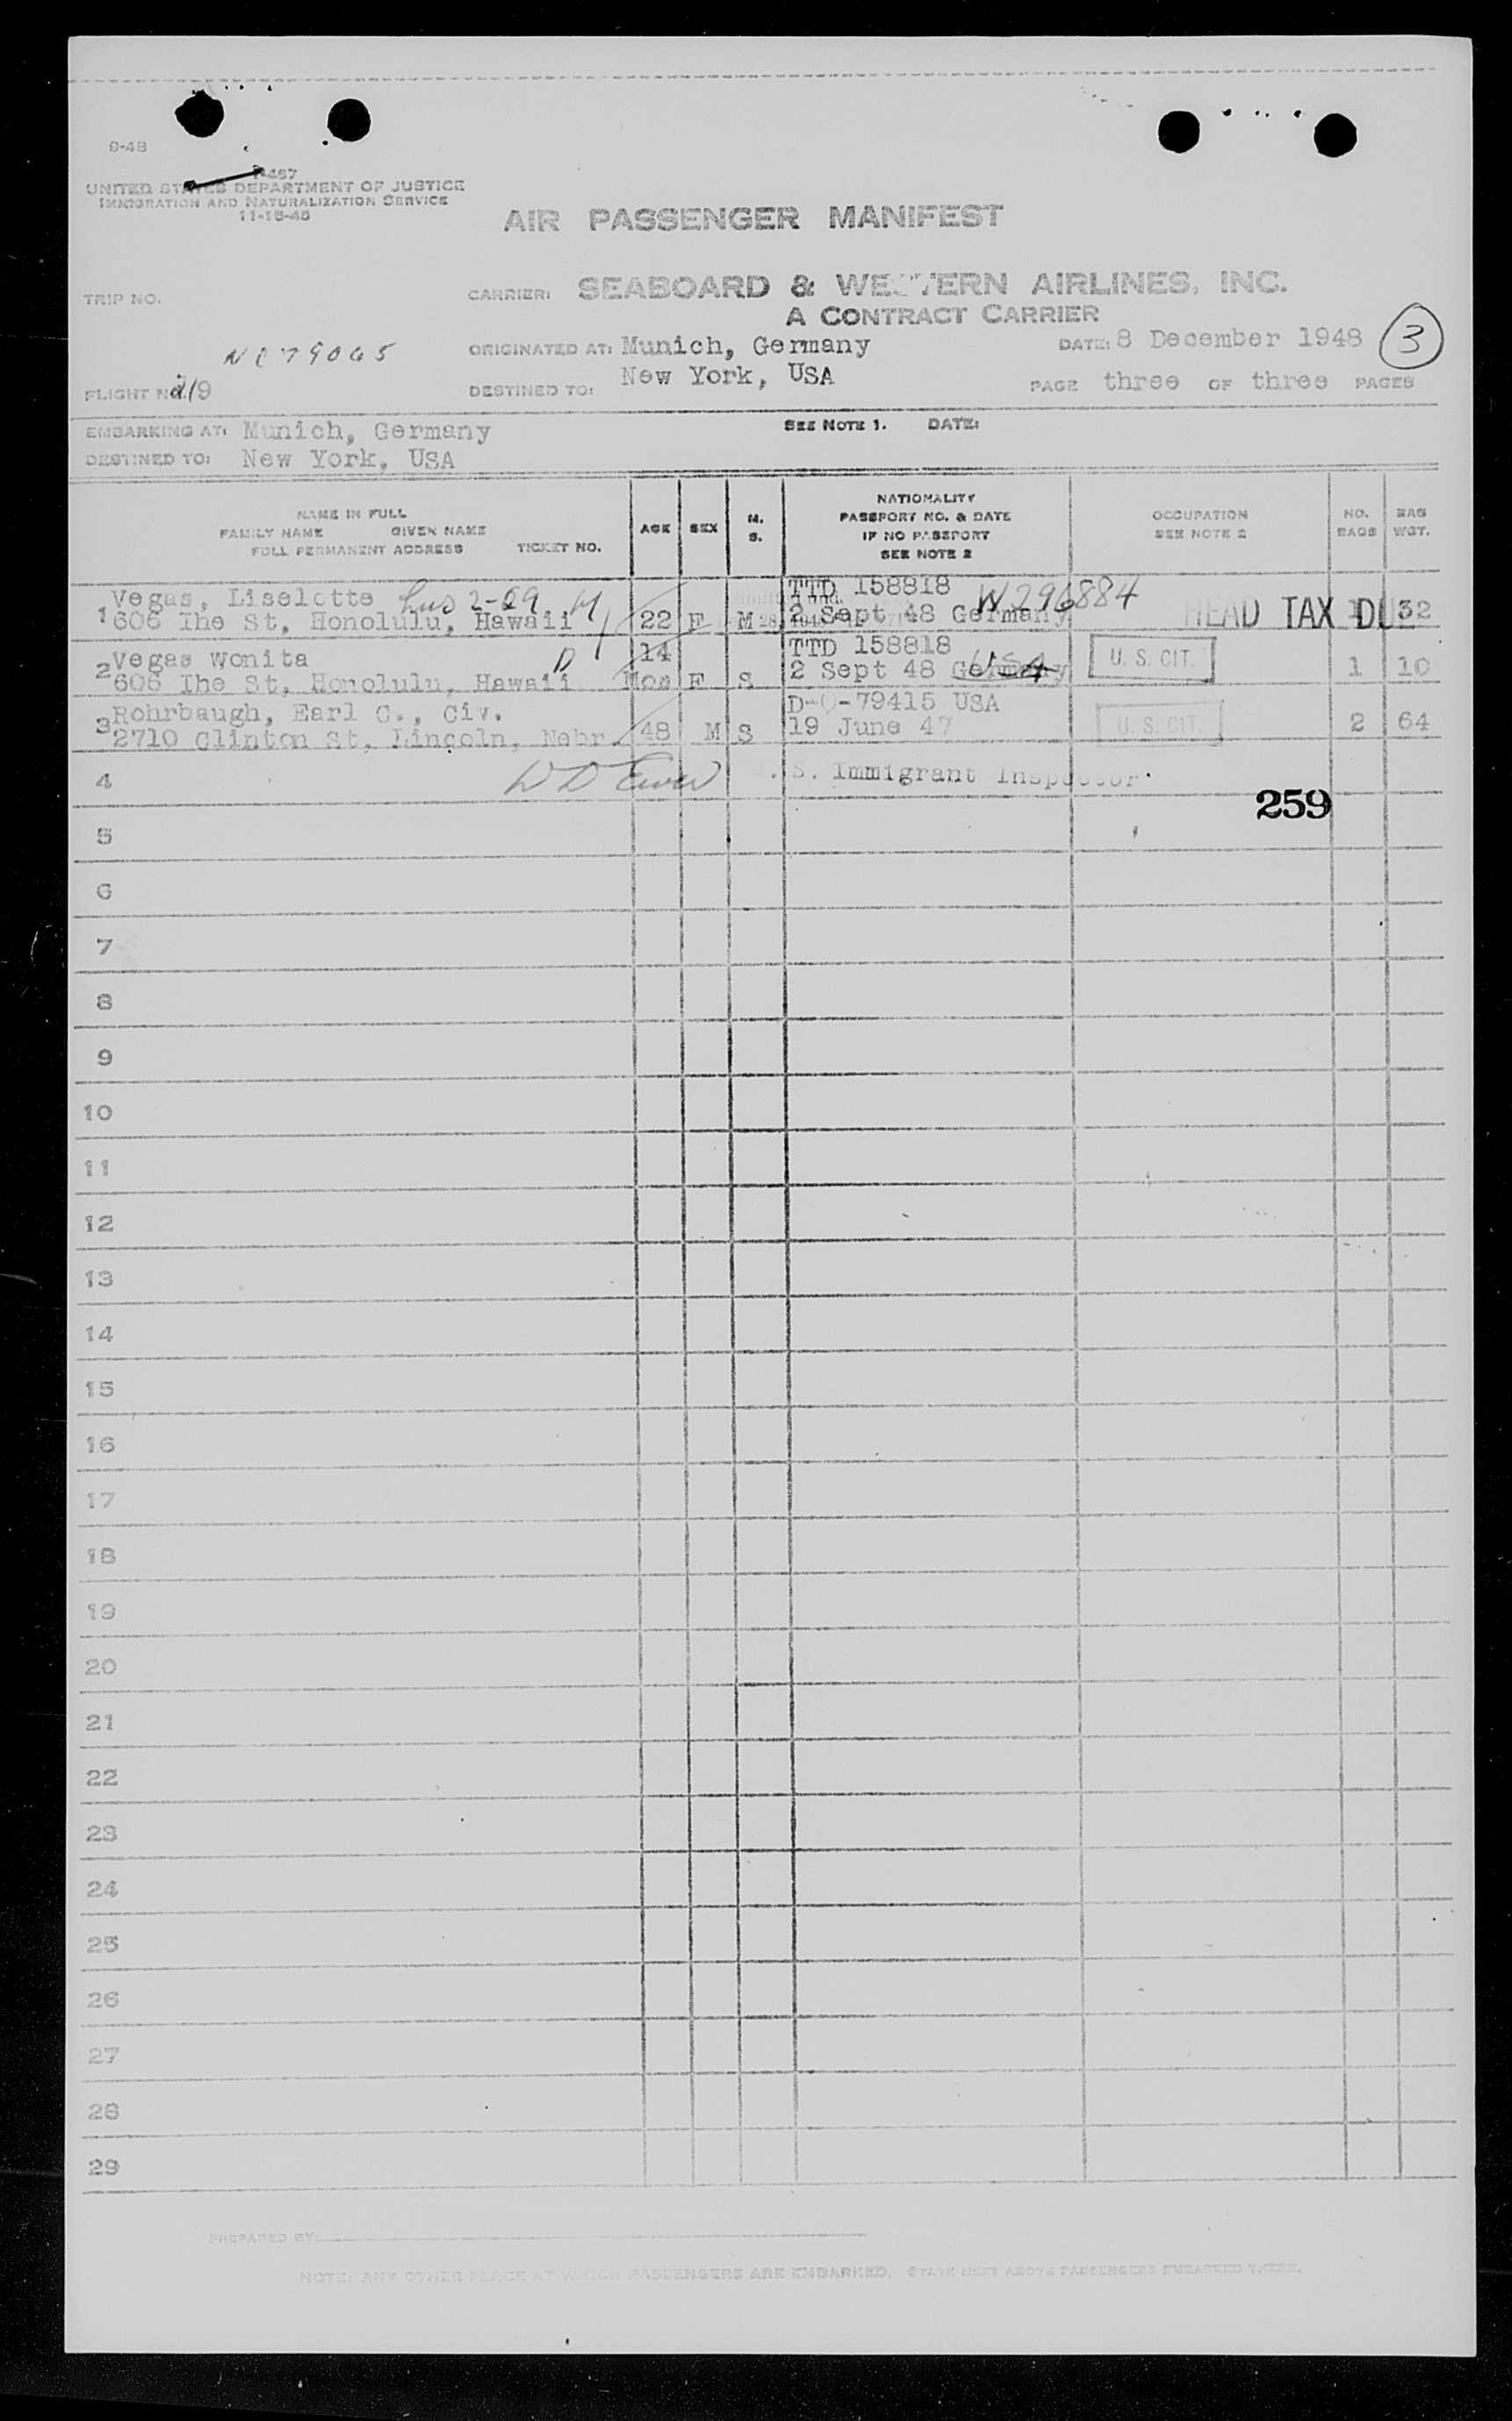 9-48
UNITED STATES DEPARTMENT OF JUSTICE
IMMIGRATION AND NATURALIZATION SERVICE
11-15-45
AIR PASSENGER MANIFEST
TRIP NO.
CARRIER: SEABOARD & WESTERN AIRLINES, INC.
A CONTRACT CARRIER
NC79065
ORIGINATED AT: Munich, Germany
DATE: 8 December 1948
3
FLIGHT NO.
DESTINED TO: New York, USA
PAGE three OF three PAGES
EMBARKING AT: Munich, Germany
SEE NOTE 1. DATE:
DESTINED TO: New York, USA
NAME IN FULL
FAMILY NAME GIVEN NAME
FULL PERMANENT ADDRESS TICKET NO.
AGE
SEX
M.
S.
NATIONALITY
PASSPORT NO. & DATE
IF NO PASSPORT
SEE NOTE 2
OCCUPATION
SEE NOTE 2
NO.
BAGS
BAG
WGT.
1 Vegas, Liselotte 2-29 TTD 158818 W296884
606 Ihe St, Honolulu, Hawaii 22 F M 2 Sept 48 Germany HEAD TAX DUE 1 32
2 Vegas Wonita D 14 TTD 158818
606 Ihe St, Honolulu, Hawaii Mos F S 2 Sept 48 Germany USA U. S. CIT. 1 10
3 Rohrbaugh, Earl C., Civ. D-C-79415 USA
2710 Clinton St, Lincoln, Nebr. 48 M S 19 June 47 U. S. CIT. 2 64
4 U. S. Immigrant Inspector.
259
5
6
7
8
9
10
11
12
13
14
15
16
17
18
19
20
21
22
23
24
25
26
27
28
29
PREPARED BY:
NOTE: ANY OTHER PLACE AT WHICH PASSENGERS ARE EMBARKED, STATE NEXT ABOVE PASSENGERS EMBARKED THERE.